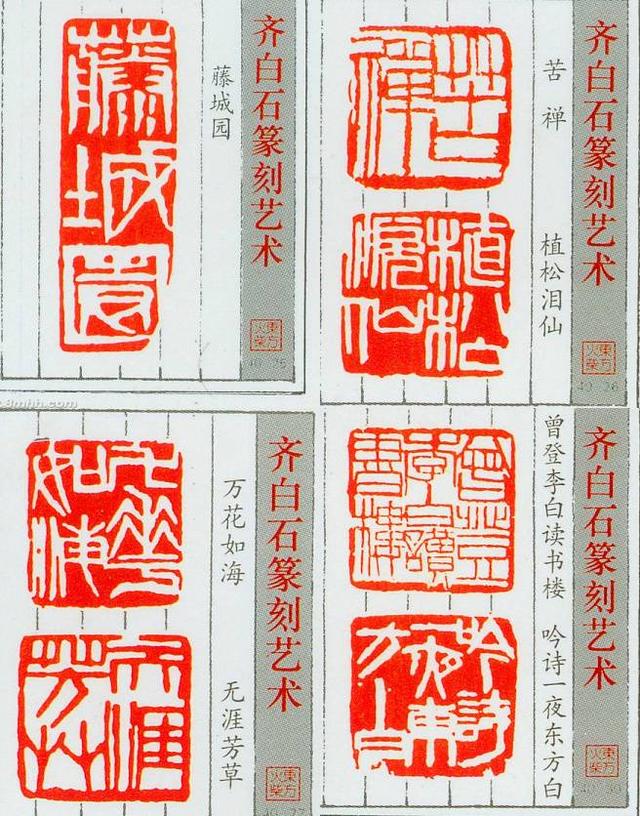 齐白石篆刻艺术
藤城园
藤城园
東方
火柴
40-25
齐白石篆刻艺术
苦禅
植松泪仙
苦禅
植松泪仙
東方
火柴
40-26
齐白石篆刻艺术
万花如海
无涯芳草
万花如海
无涯芳草
東方
火柴
40-27
齐白石篆刻艺术
曾登李白读书楼
吟诗一夜东方白
曾登李白讀書樓
吟詩一夜東方白
東方
火柴